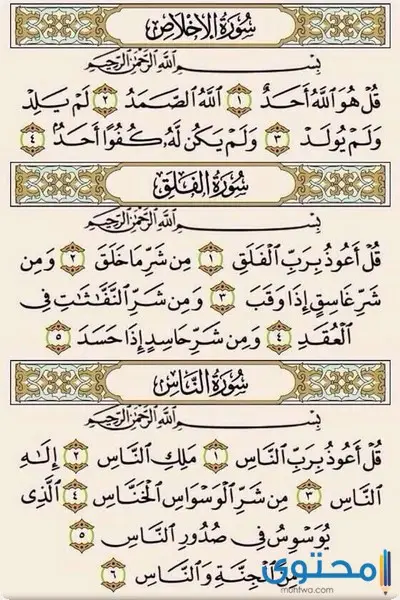 سُورَةُ الإِخْلَاصِ
بِسْمِ اللَّهِ الرَّحْمَٰنِ الرَّحِيمِ
قُلْ هُوَ اللَّهُ أَحَدٌ ١ اللَّهُ الصَّمَدُ ٢ لَمْ يَلِدْ
وَلَمْ يُولَدْ ٣ وَلَمْ يَكُن لَّهُ كُفُوًا أَحَدٌ ٤
سُورَةُ الْفَلَقِ
بِسْمِ اللَّهِ الرَّحْمَٰنِ الرَّحِيمِ
قُلْ أَعُوذُ بِرَبِّ الْفَلَقِ ١ مِن شَرِّ مَا خَلَقَ ٢ وَمِن
شَرِّ غَاسِقٍ إِذَا وَقَبَ ٣ وَمِن شَرِّ النَّفَّاثَاتِ فِي
الْعُقَدِ ٤ وَمِن شَرِّ حَاسِدٍ إِذَا حَسَدَ ٥
سُورَةُ النَّاسِ
بِسْمِ اللَّهِ الرَّحْمَٰنِ الرَّحِيمِ
قُلْ أَعُوذُ بِرَبِّ النَّاسِ ١ مَلِكِ النَّاسِ ٢ إِلَٰهِ
النَّاسِ ٣ مِن شَرِّ الْوَسْوَاسِ الْخَنَّاسِ ٤ الَّذِي
يُوَسْوِسُ فِي صُدُورِ النَّاسِ ٥
مِنَ الْجِنَّةِ وَالنَّاسِ ٦
محتوى
muhtwa.com